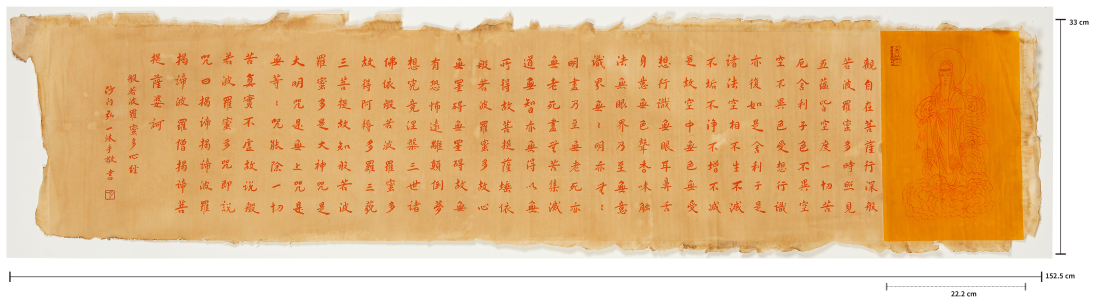 觀自在菩薩行深般
若波羅蜜多時照見
五蘊皆空度一切苦
厄舍利子色不異空
空不異色受想行識
亦復如是舍利子是
諸法空相不生不滅
不垢不淨不增不減
是故空中無色無受
想行識無眼耳鼻舌
身意無色聲香味觸
法無眼界乃至無意
識界無〻明亦無〻
明盡乃至無老死亦
無老死盡無苦集滅
道無智亦無得以無
所得故菩提薩埵依
般若波羅蜜多故心
無罣礙無罣礙故無
有恐怖遠離顛倒夢
想究竟涅槃三世諸
佛依般若波羅蜜多
故得阿耨多羅三藐
三菩提故知般若波
羅蜜多是大神咒是
大明咒是無上咒是
無等〻咒能除一切
苦真實不虛故說般
若波羅蜜多咒即說
咒曰揭諦揭諦波羅
揭諦波羅僧揭諦菩
提薩婆訶
般若波羅蜜多心經
沙門弘一沐手敬書
33 cm
152.5 cm
22.2 cm